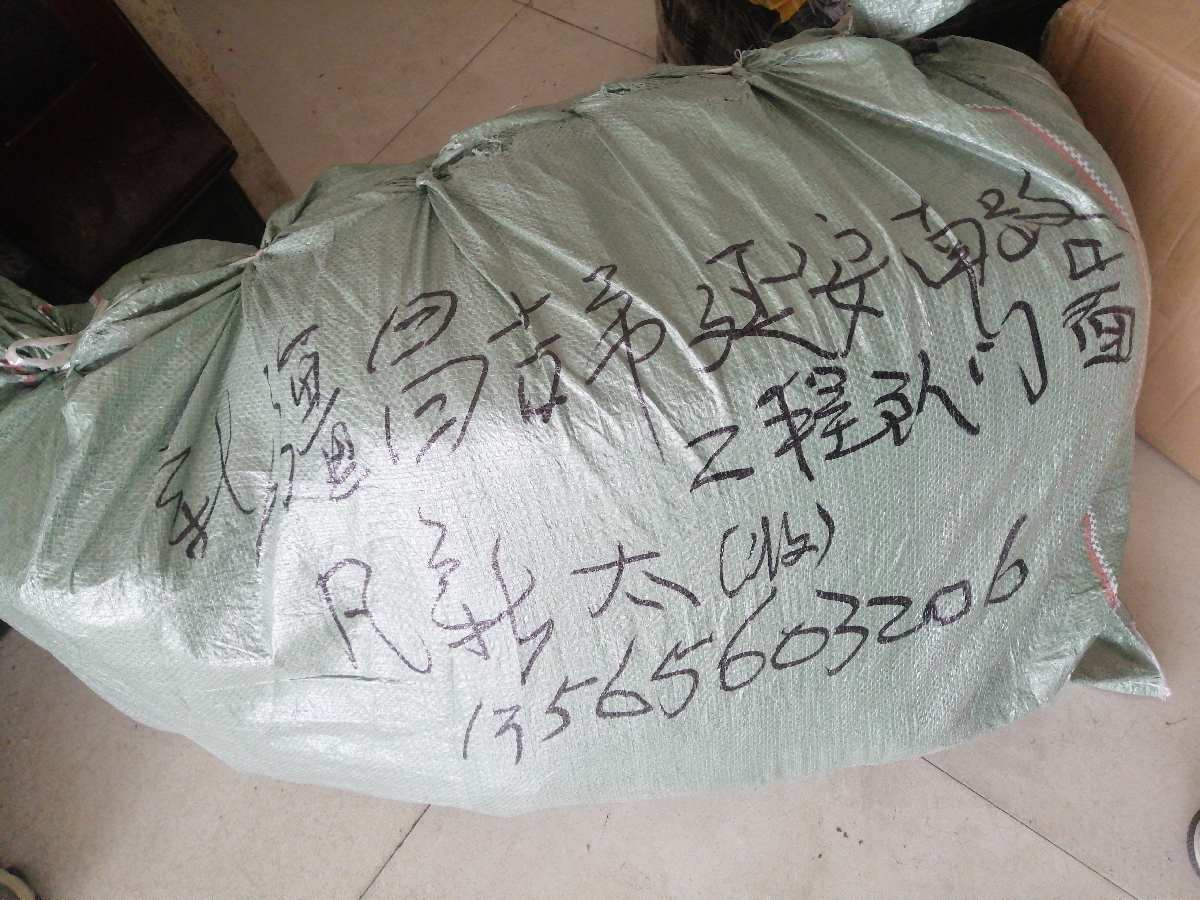 新疆昌吉市延安南路口
工程队门面
尺新太(收)
13565603206